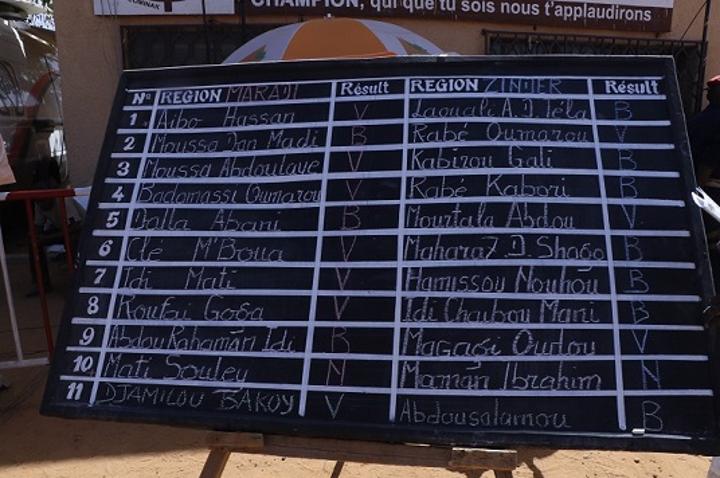 CHAMPION, qui que tu sois nous t'applaudirons
N° REGION MARADI Résult REGION ZINDER Résult
1 Aibo Hassan V Laouali A.D. Tela B
2 Moussa Dan Madi B Rabé Oumarou V
3 Moussa Abdoulaye V Kabirou Gali B
4 Badamassi Oumarou V Rabé Kabori B
5 Dalla Abani B Mourtala Abdou V
6 Clé M'Boua V Maharaz D. Shago B
7 Idi Mati V Hamissou Nouhou B
8 Roufai Goga V Idi Chaibou Mani B
9 Abdou Rahaman Idi B Magagi Ourdou V
10 Mati Souley N Maman Ibrahim N
11 DJAMILOU BAKOY V Abdousalamou B